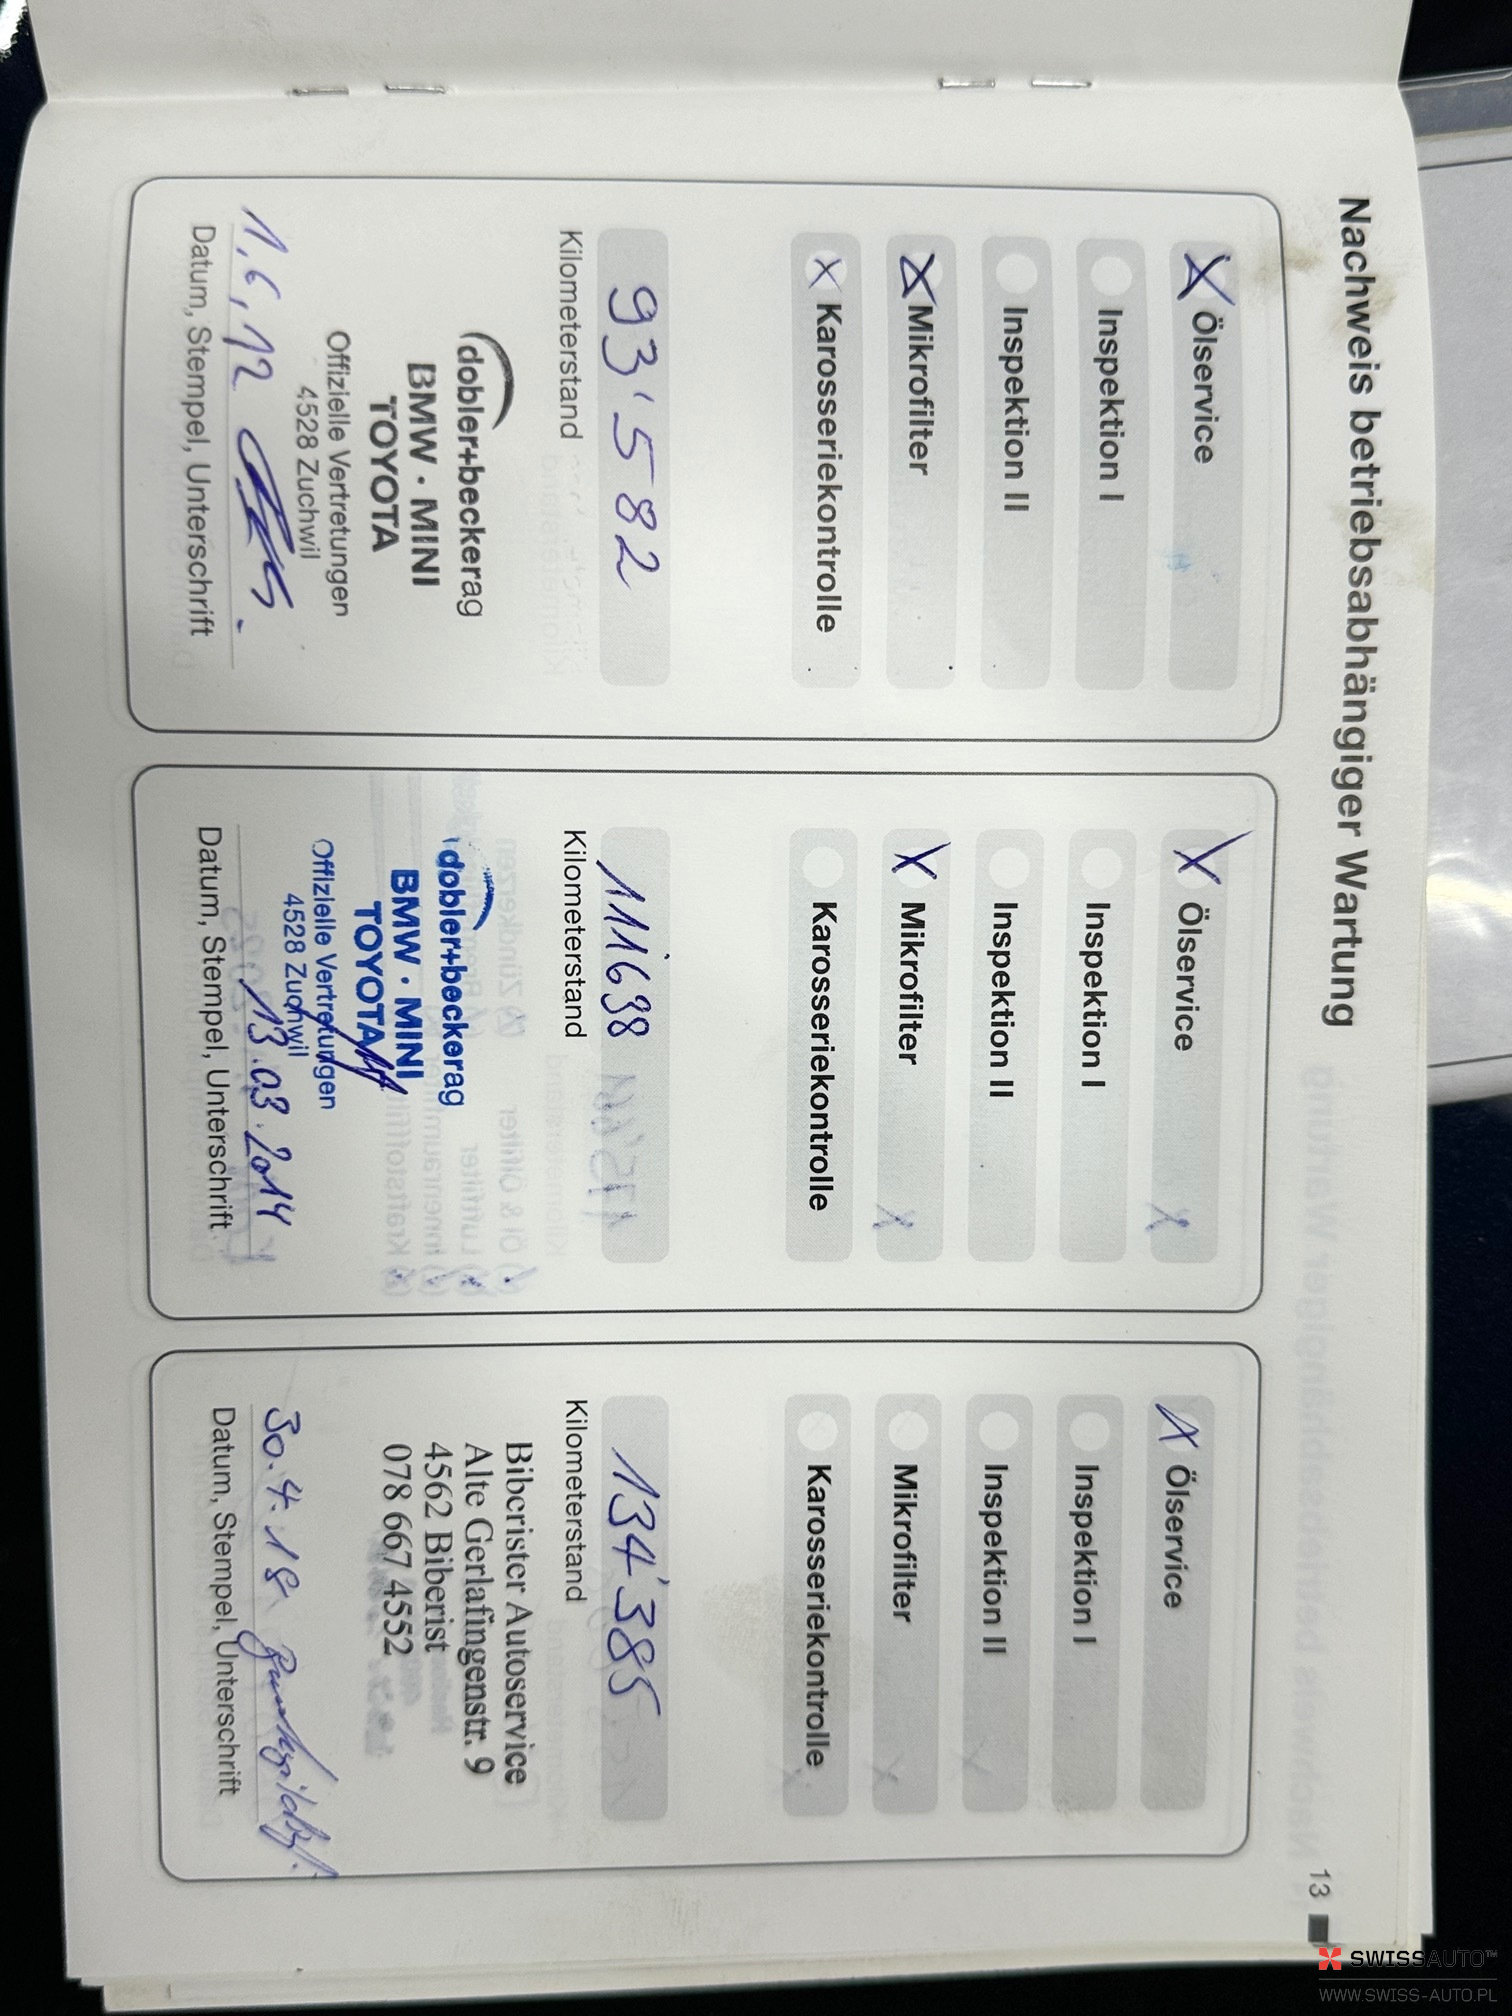 Nachweis betriebsabhängiger Wartung
X Ölservice
Inspektion I
Inspektion II
X Mikrofilter
X Karosseriekontrolle
93'582
Kilometerstand
dobler+beckerag
BMW · MINI
TOYOTA
Offizielle Vertretungen
4528 Zuchwil
1.6.12
Datum, Stempel, Unterschrift
X Ölservice
Inspektion I
Inspektion II
X Mikrofilter
Karosseriekontrolle
111'698
Kilometerstand
dobler+beckerag
BMW · MINI
TOYOTA
Offizielle Vertretungen
4528 Zuchwil
13.03.2014
Datum, Stempel, Unterschrift
X Ölservice
Inspektion I
Inspektion II
Mikrofilter
Karosseriekontrolle
134'385
Kilometerstand
Biberister Autoservice
Alte Gerlafingenstr. 9
4562 Biberist
078 667 4552
30.4.18
Datum, Stempel, Unterschrift
13
SWISSAUTO™
WWW.SWISS-AUTO.PL